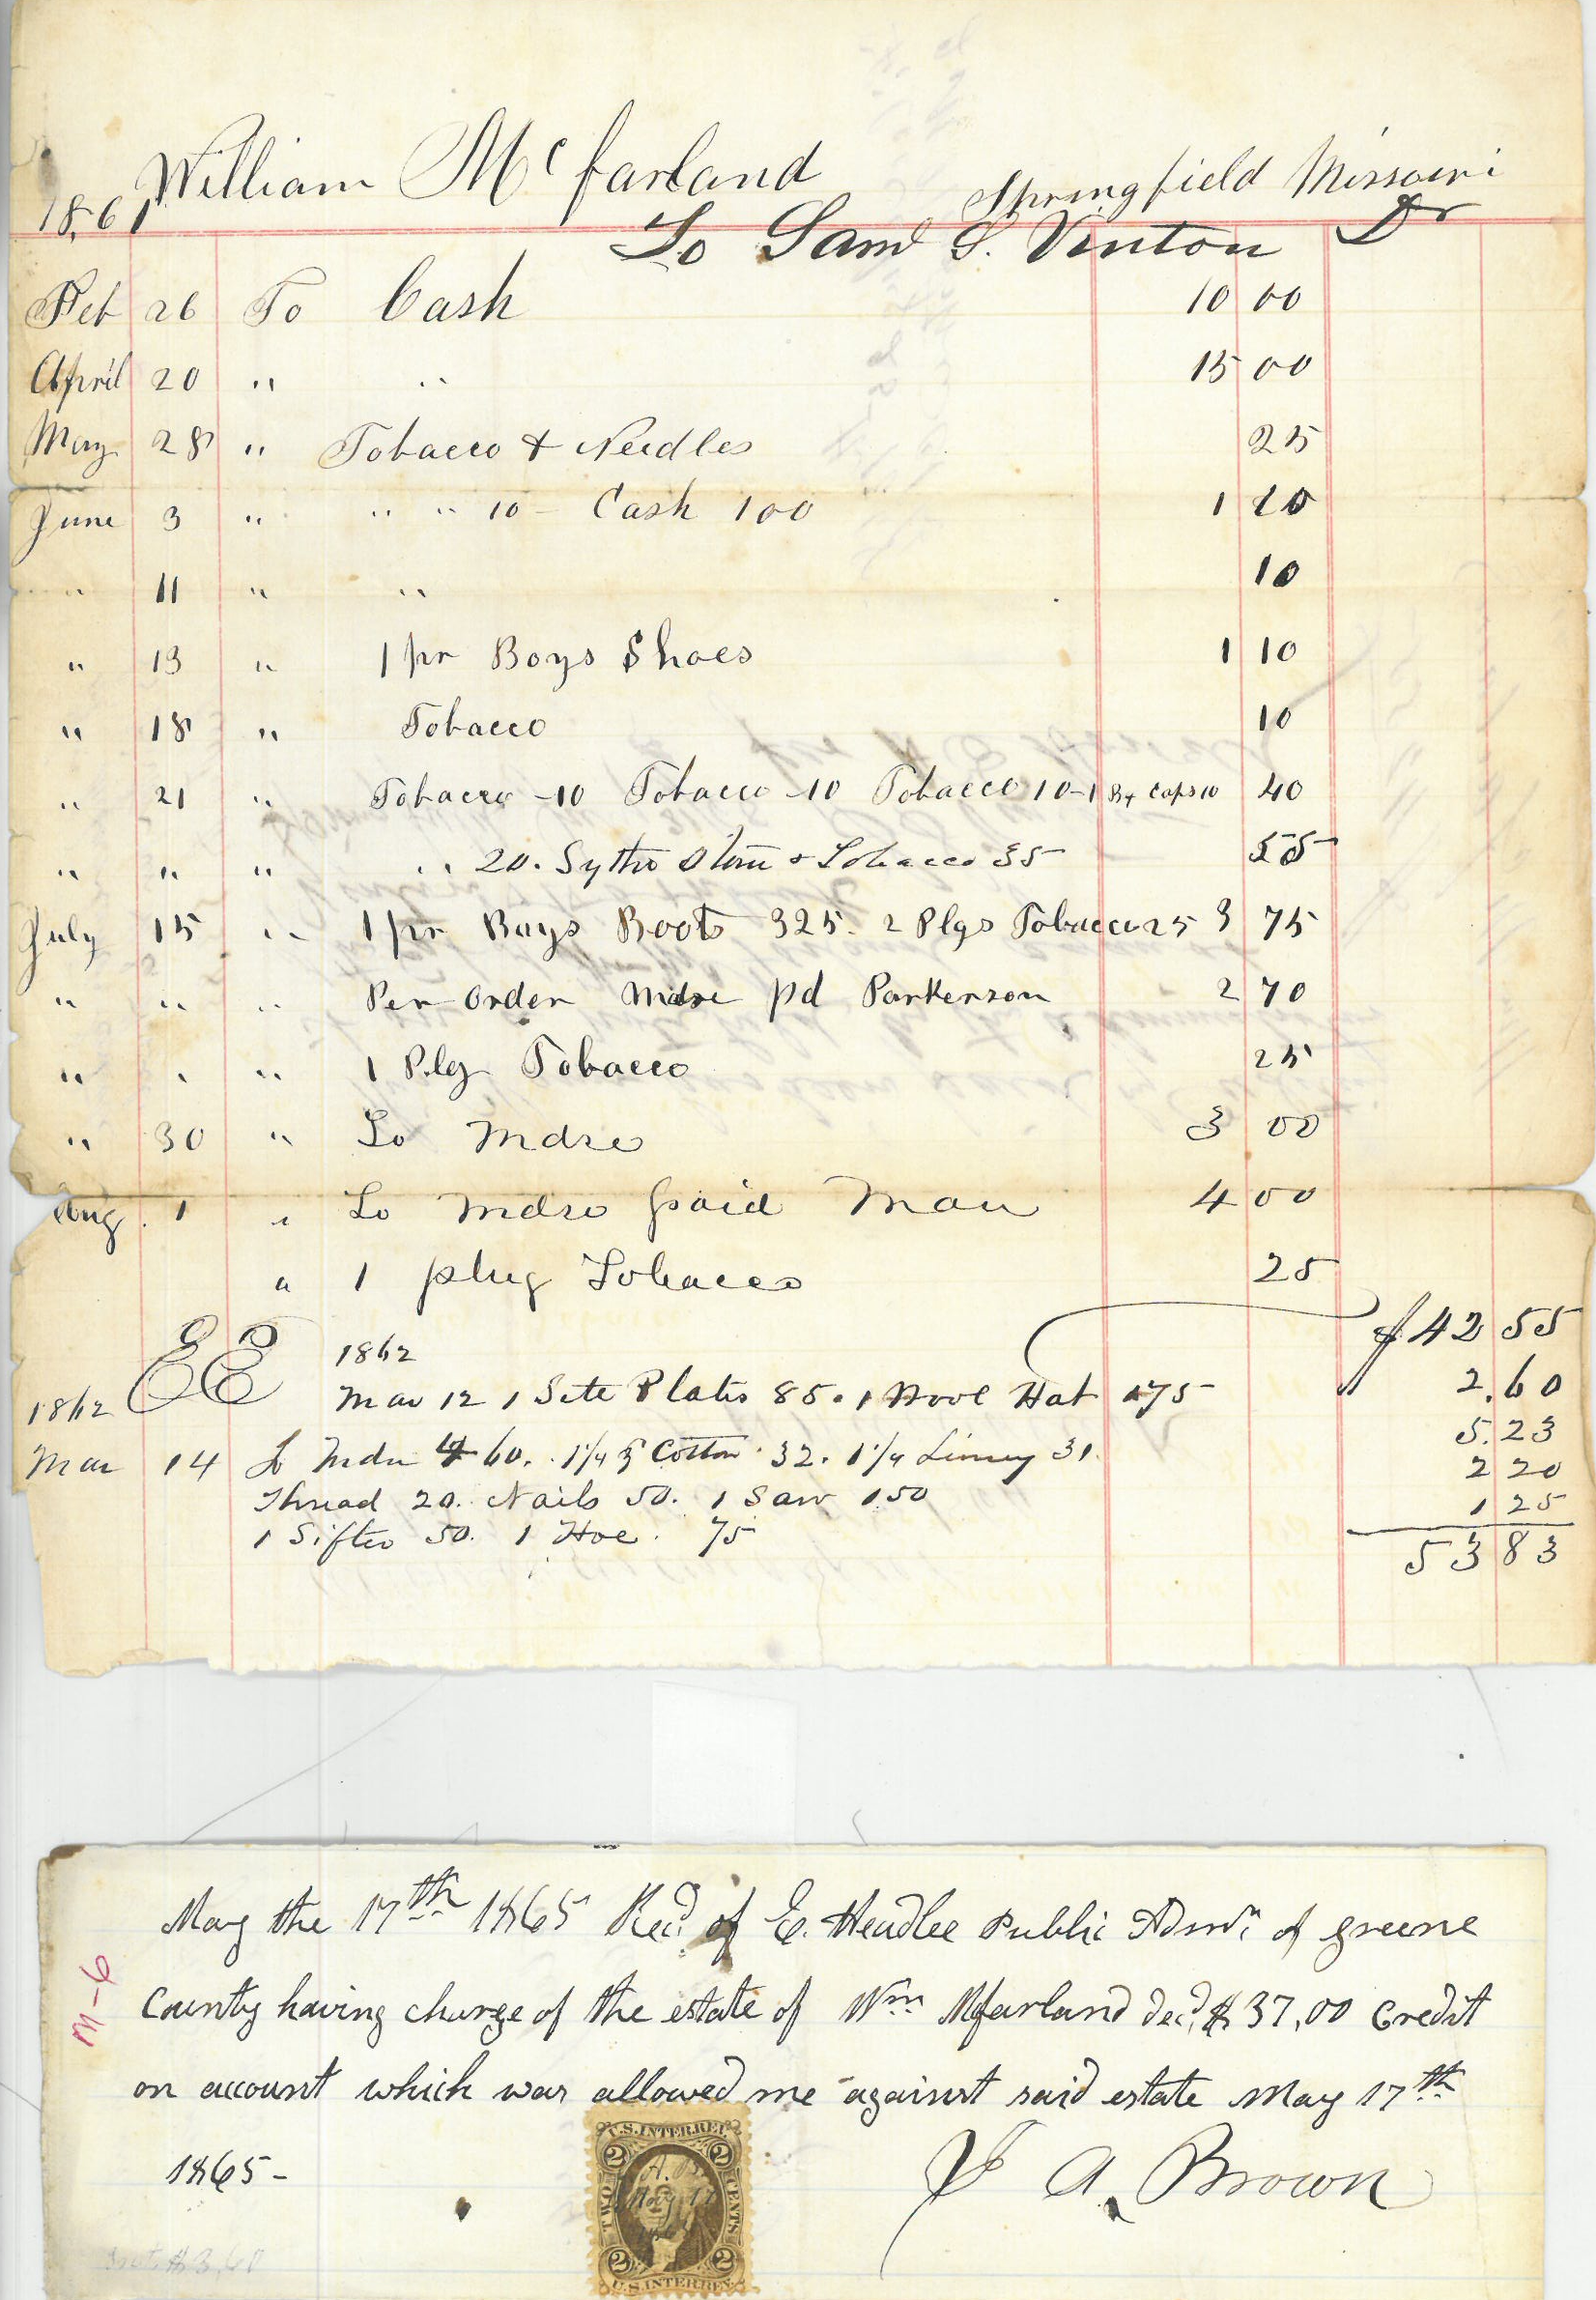 William Mc farland Springfield Missouri
1861
To Saml S. Vinton Dr
Feb 26 To Cash 10 00
April 20 " " 15 00
May 28 " Tobacco & Needles 25
June 3 " " " 10 - Cash 100 1 10
" 11 " " 10
" 13 " 1 pr Boys Shoes 1 10
" 18 " Tobacco 10
" 21 " Tobacco -10 Tobacco -10 Tobacco 10-1 Bx Caps 10 40
" " " " 20. Sythe Stone & Tobacco 35 55
July 15 " 1 pr Boys Boots 325. 2 Plgs Tobacco 25 3 75
" " " Per Order Mdse pd Parkerson 2 70
" " " 1 Plg Tobacco 25
" 30 " To Mdse 3 00
Aug. 1 " To Mdse paid Man 4 00
" 1 plug Tobacco 25
$42 55
EE 1862
1862 Mar 12 1 Sete Plates 85. 1 Wool Hat 175 2.60
5.23
Mar 14 To Mdse 60. 1 1/4 Cotton. 32. 1 1/4 Linsey 31. 2 20
Thread 20. Nails 50. 1 Saw 150 1 25
1 Sifter 50. 1 Hoe. 75 53 83
May the 17th 1865 Recd of E. Headlee Public Admr of greene
County having charge of the estate of Wm Mcfarland decd $37,00 Credit
on account which was allowed me against said estate May 17th
1865-
M-6
A. Brown
U.S. INTER. REV.
2 2
TWO CENTS
A. B.
May 17
2 2
U.S. INTER. REV.